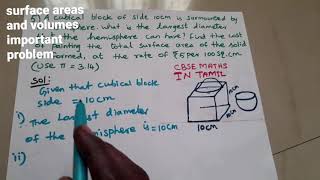 surface areas
and volumes
important
problem
5) A cubical block of side 10cm is surmounted by
a hemisphere. what is the largest diameter
the hemisphere can have? Find the cost
of painting the total surface area of the solid
formed, at the rate of ₹5 per 100 sq.cm.
(USE π = 3.14)
CBSE MATHS
IN TAMIL
Sol:
Given that cubical block
side = 10cm
i) The Largest diameter
of the hemisphere is = 10cm
ii)
10cm
10cm
10cm